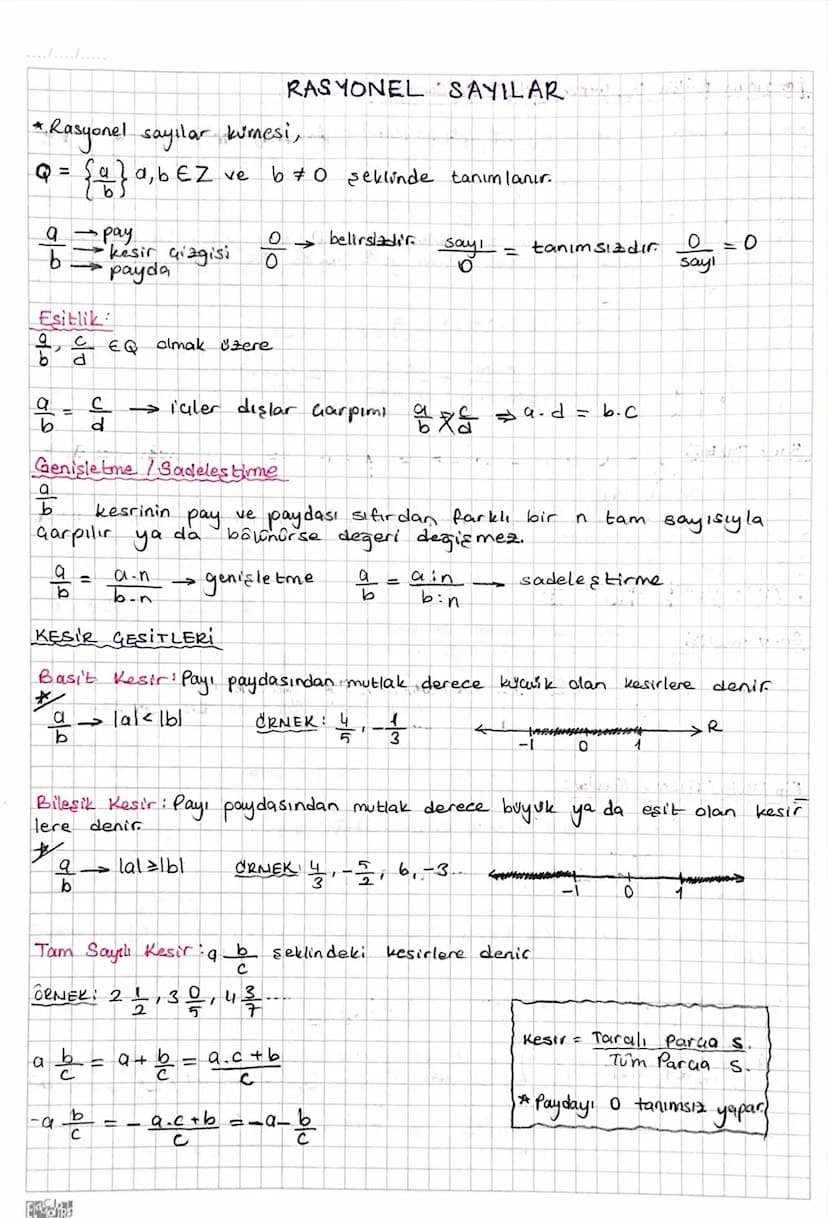 RASYONEL SAYILAR
* Rasyonel sayılar kümesi,
Q = {a/b} a,b ∈ Z ve b ≠ 0 şeklinde tanımlanır.
a/b → pay → kesir çizgisi → payda 0/0 → belirsizdir. sayı/0 = tanımsızdır. 0/sayı = 0
Eşitlik:
a/b, c/d ∈ Q olmak üzere
a/b = c/d → içler dışlar çarpımı a/b X c/d ⇒ a.d = b.c
Genişletme / Sadeleştirme
a/b kesrinin pay ve paydası sıfırdan farklı bir n tam sayısıyla
çarpılır ya da bölünürse değeri değişmez.
a/b = a.n/b.n → genişletme a/b = a:n/b:n → sadeleştirme
KESİR ÇEŞİTLERİ
Basit Kesir: Payı paydasından mutlak derece küçük olan kesirlere denir.
* a/b → |a|<|b| ÖRNEK: 4/5, -1/3... R
-1 0 1
Bileşik Kesir: Payı paydasından mutlak derece büyük ya da eşit olan kesir
lere denir.
* a/b → |a|≥|b| ÖRNEK: 4/3, -5/2, 6, -3..
-1 0 1
Tam Sayılı Kesir: a b/c şeklindeki kesirlere denir
ÖRNEK: 2 1/2, 3 0/5, 4 3/7 ....
a b/c = a + b/c = a.c+b/c
-a b/c = - a.c+b/c = -a - b/c
Kesir = Taralı Parça s./Tüm Parça s.
* Paydayı 0 tanımsız yapar